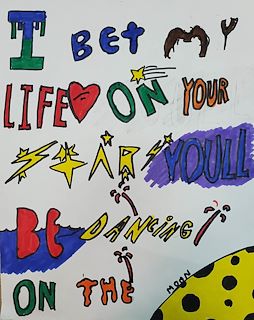 I BET MY
LIFE ON YOUR
STARS YOULL
BE DANCING
ON THE
MOON